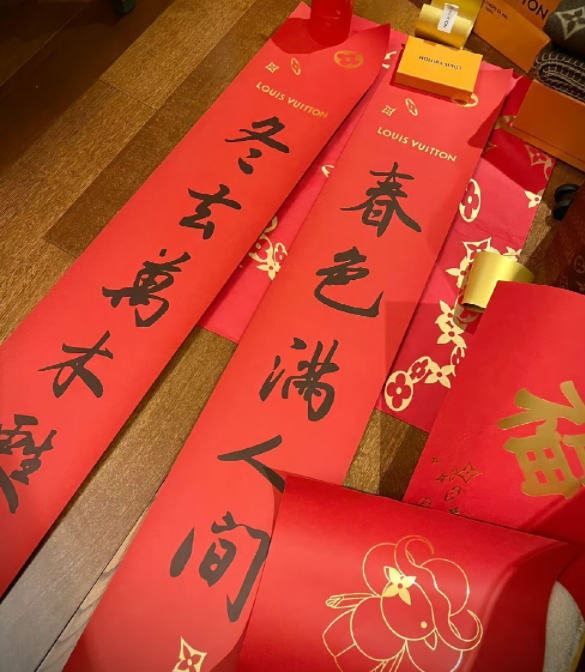 LOUIS VUITTON
冬去萬木
LOUIS VUITTON
春色满人间
福
LOUIS VUITTON